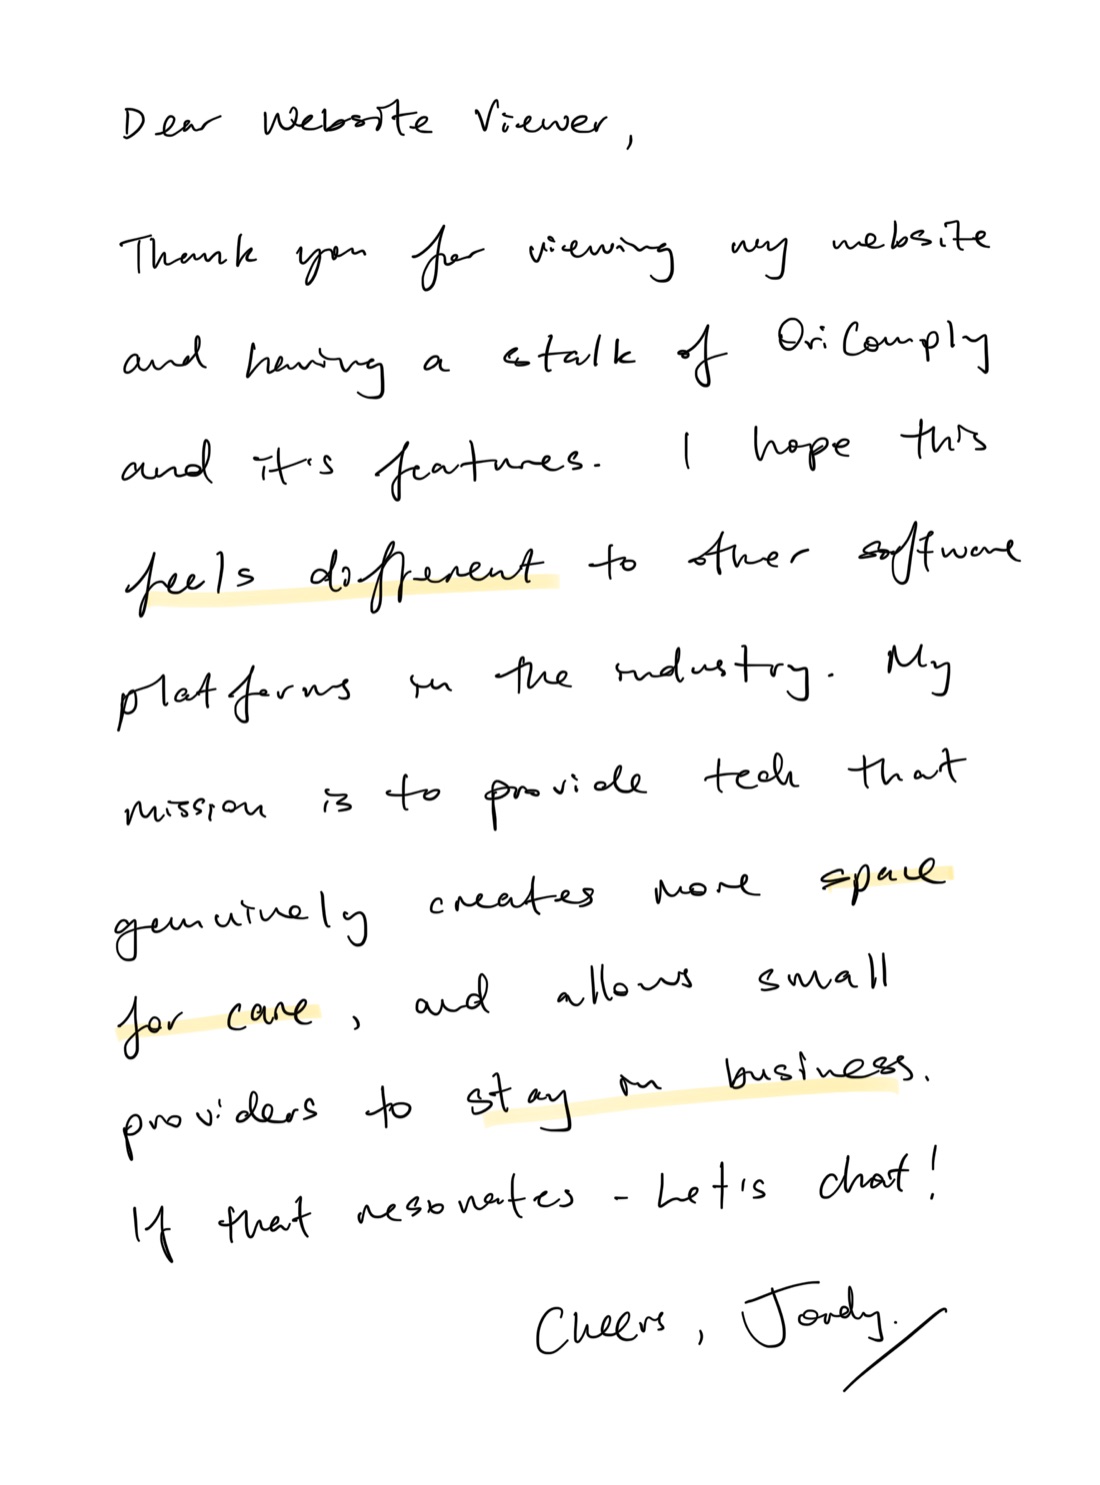 Dear Website Viewer,
Thank you for viewing my website
and having a stalk of OriComply
and it's features. I hope this
feels different to other software
platforms in the industry. My
mission is to provide tech that
genuinely creates more space
for care, and allows small
providers to stay in business.
If that resonates - Let's chat!
Cheers, Jordy.